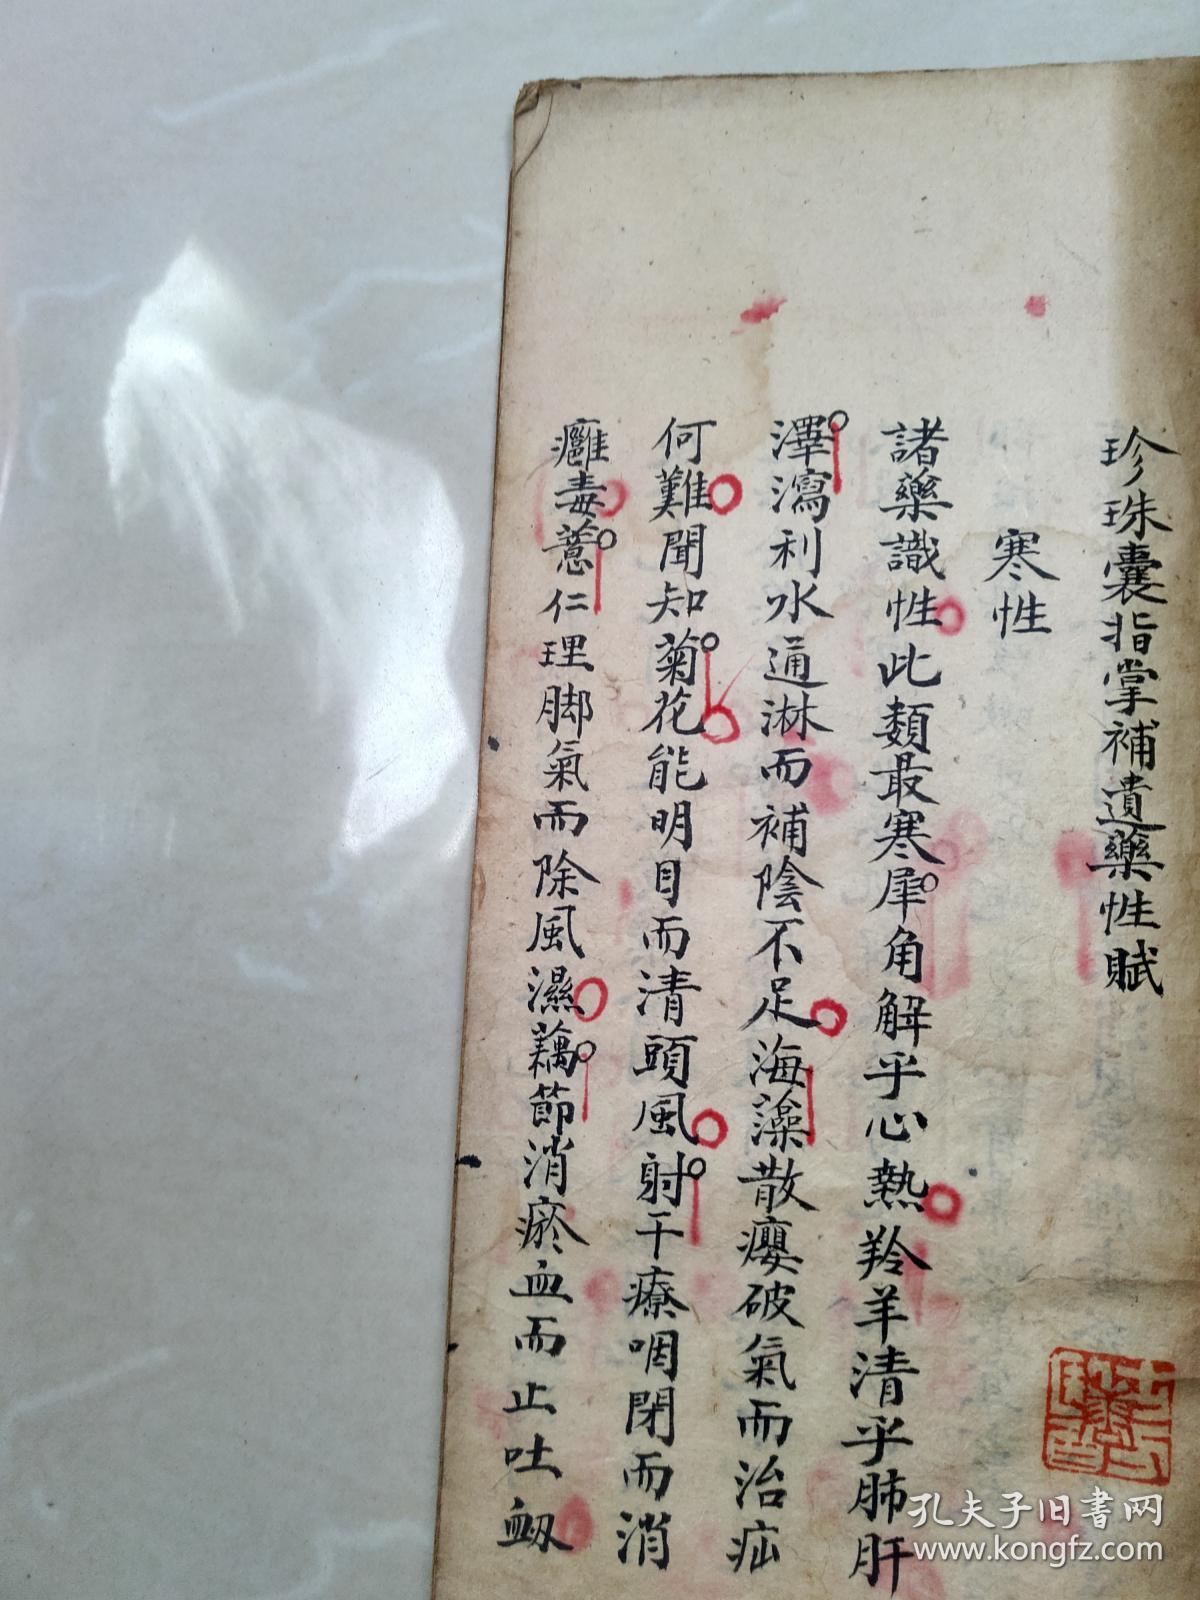 珍珠囊指掌補遺藥性賦
寒性
諸藥識性此類最寒犀角解乎心熱羚羊清乎肺肝
澤瀉利水通淋而補陰不足海藻散癭破氣而治疝
何難聞知菊花能明目而清頭風射干療咽閉而消
癰毒薏仁理脚氣而除風濕藕節消瘀血而止吐衂
孔夫子旧书网
www.kongfz.com